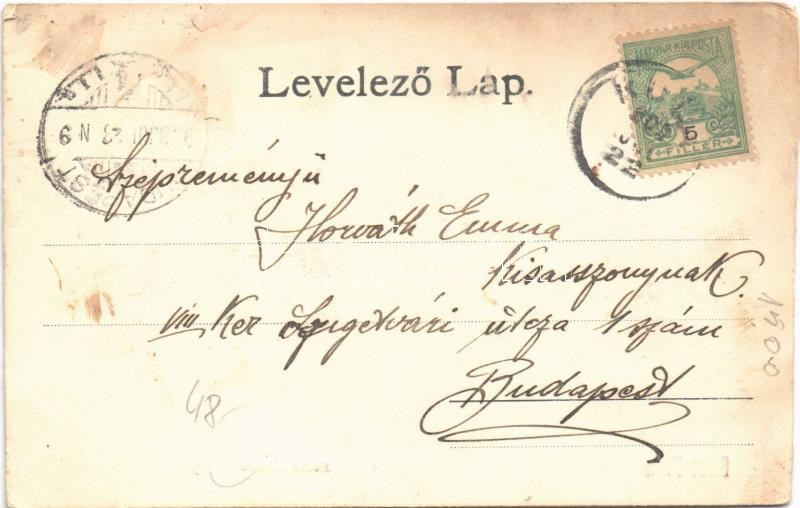 Levelező Lap.
MAGYAR KIR. POSTA
5
FILLÉR
BUDAPEST
23 N 9
22
Szépreményü
Horváth Emma
Kisasszonynak.
VIII Ker Szigetvári útcza 1 szám
Budapest
48
1500